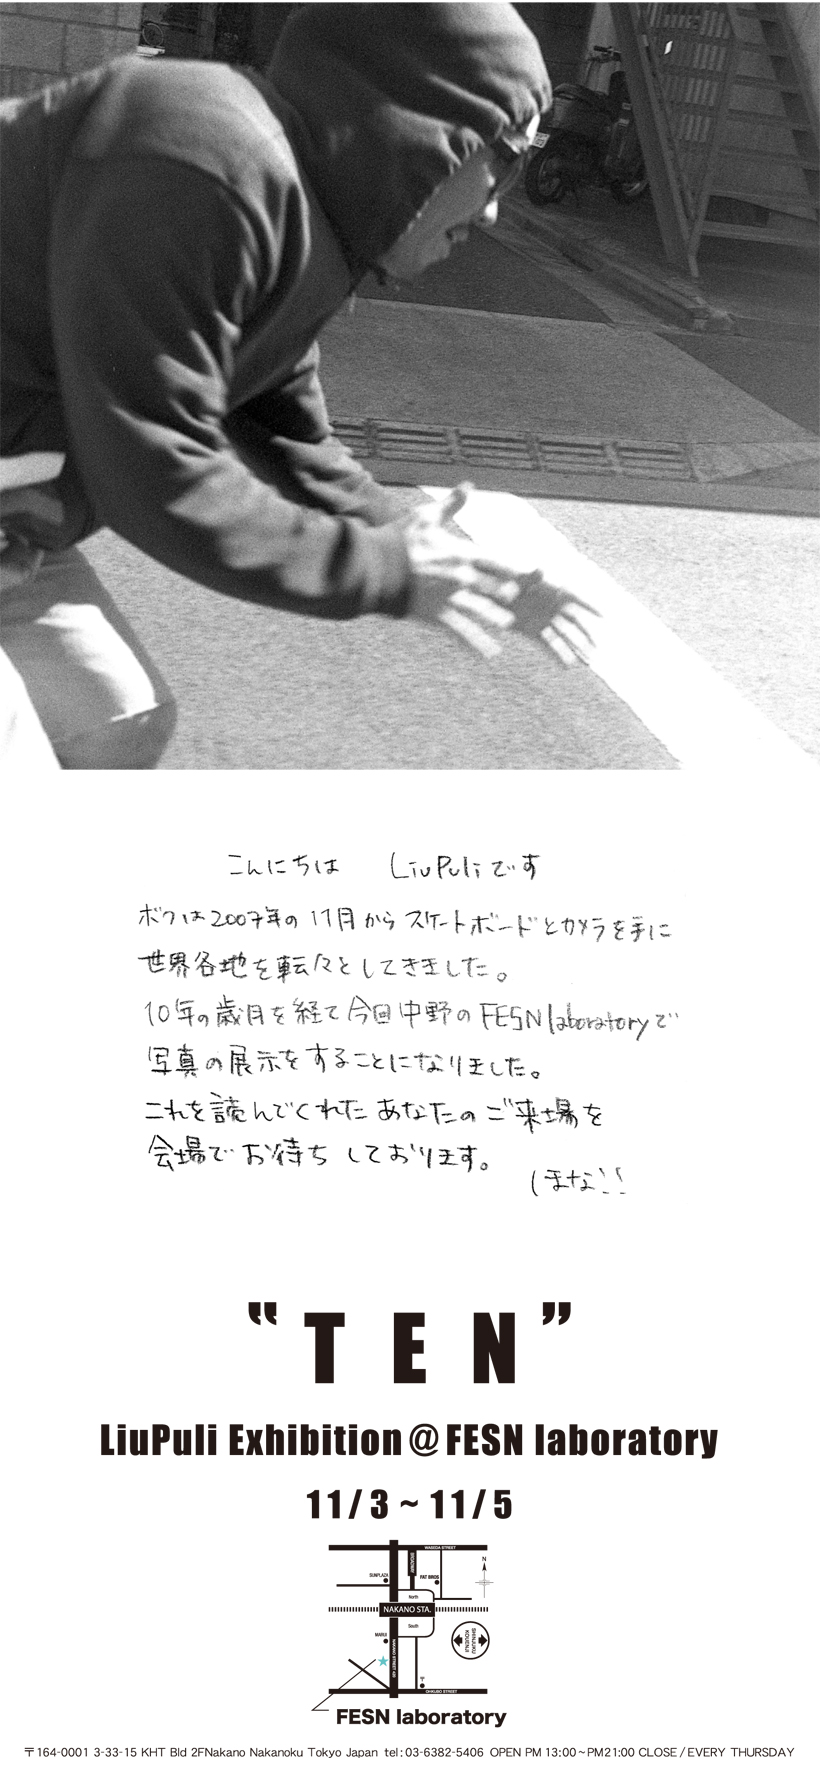 こんにちは LiuPuliです
ボクは2007年の11月からスケートボードとカメラを手に
世界各地を転々としてきました。
10年の歳月を経て今回中野のFESN laboratoryで
写真の展示をすることになりました。
これを読んでくれたあなたのご来場を
会場でお待ちしております。
ほな!!
"TEN"
LiuPuli Exhibition @ FESN laboratory
11/3 ~ 11/5
WASEDA STREET
BROADWAY
SUNPLAZA
FAT BROS
N
North
NAKANO STA.
South
MARUI
SHINJUKU
KOUENJI
〒
OHKUBO STREET
FESN laboratory
〒164-0001 3-33-15 KHT Bld 2FNakano Nakanoku Tokyo Japan tel:03-6382-5406 OPEN PM 13:00~PM21:00 CLOSE/EVERY THURSDAY